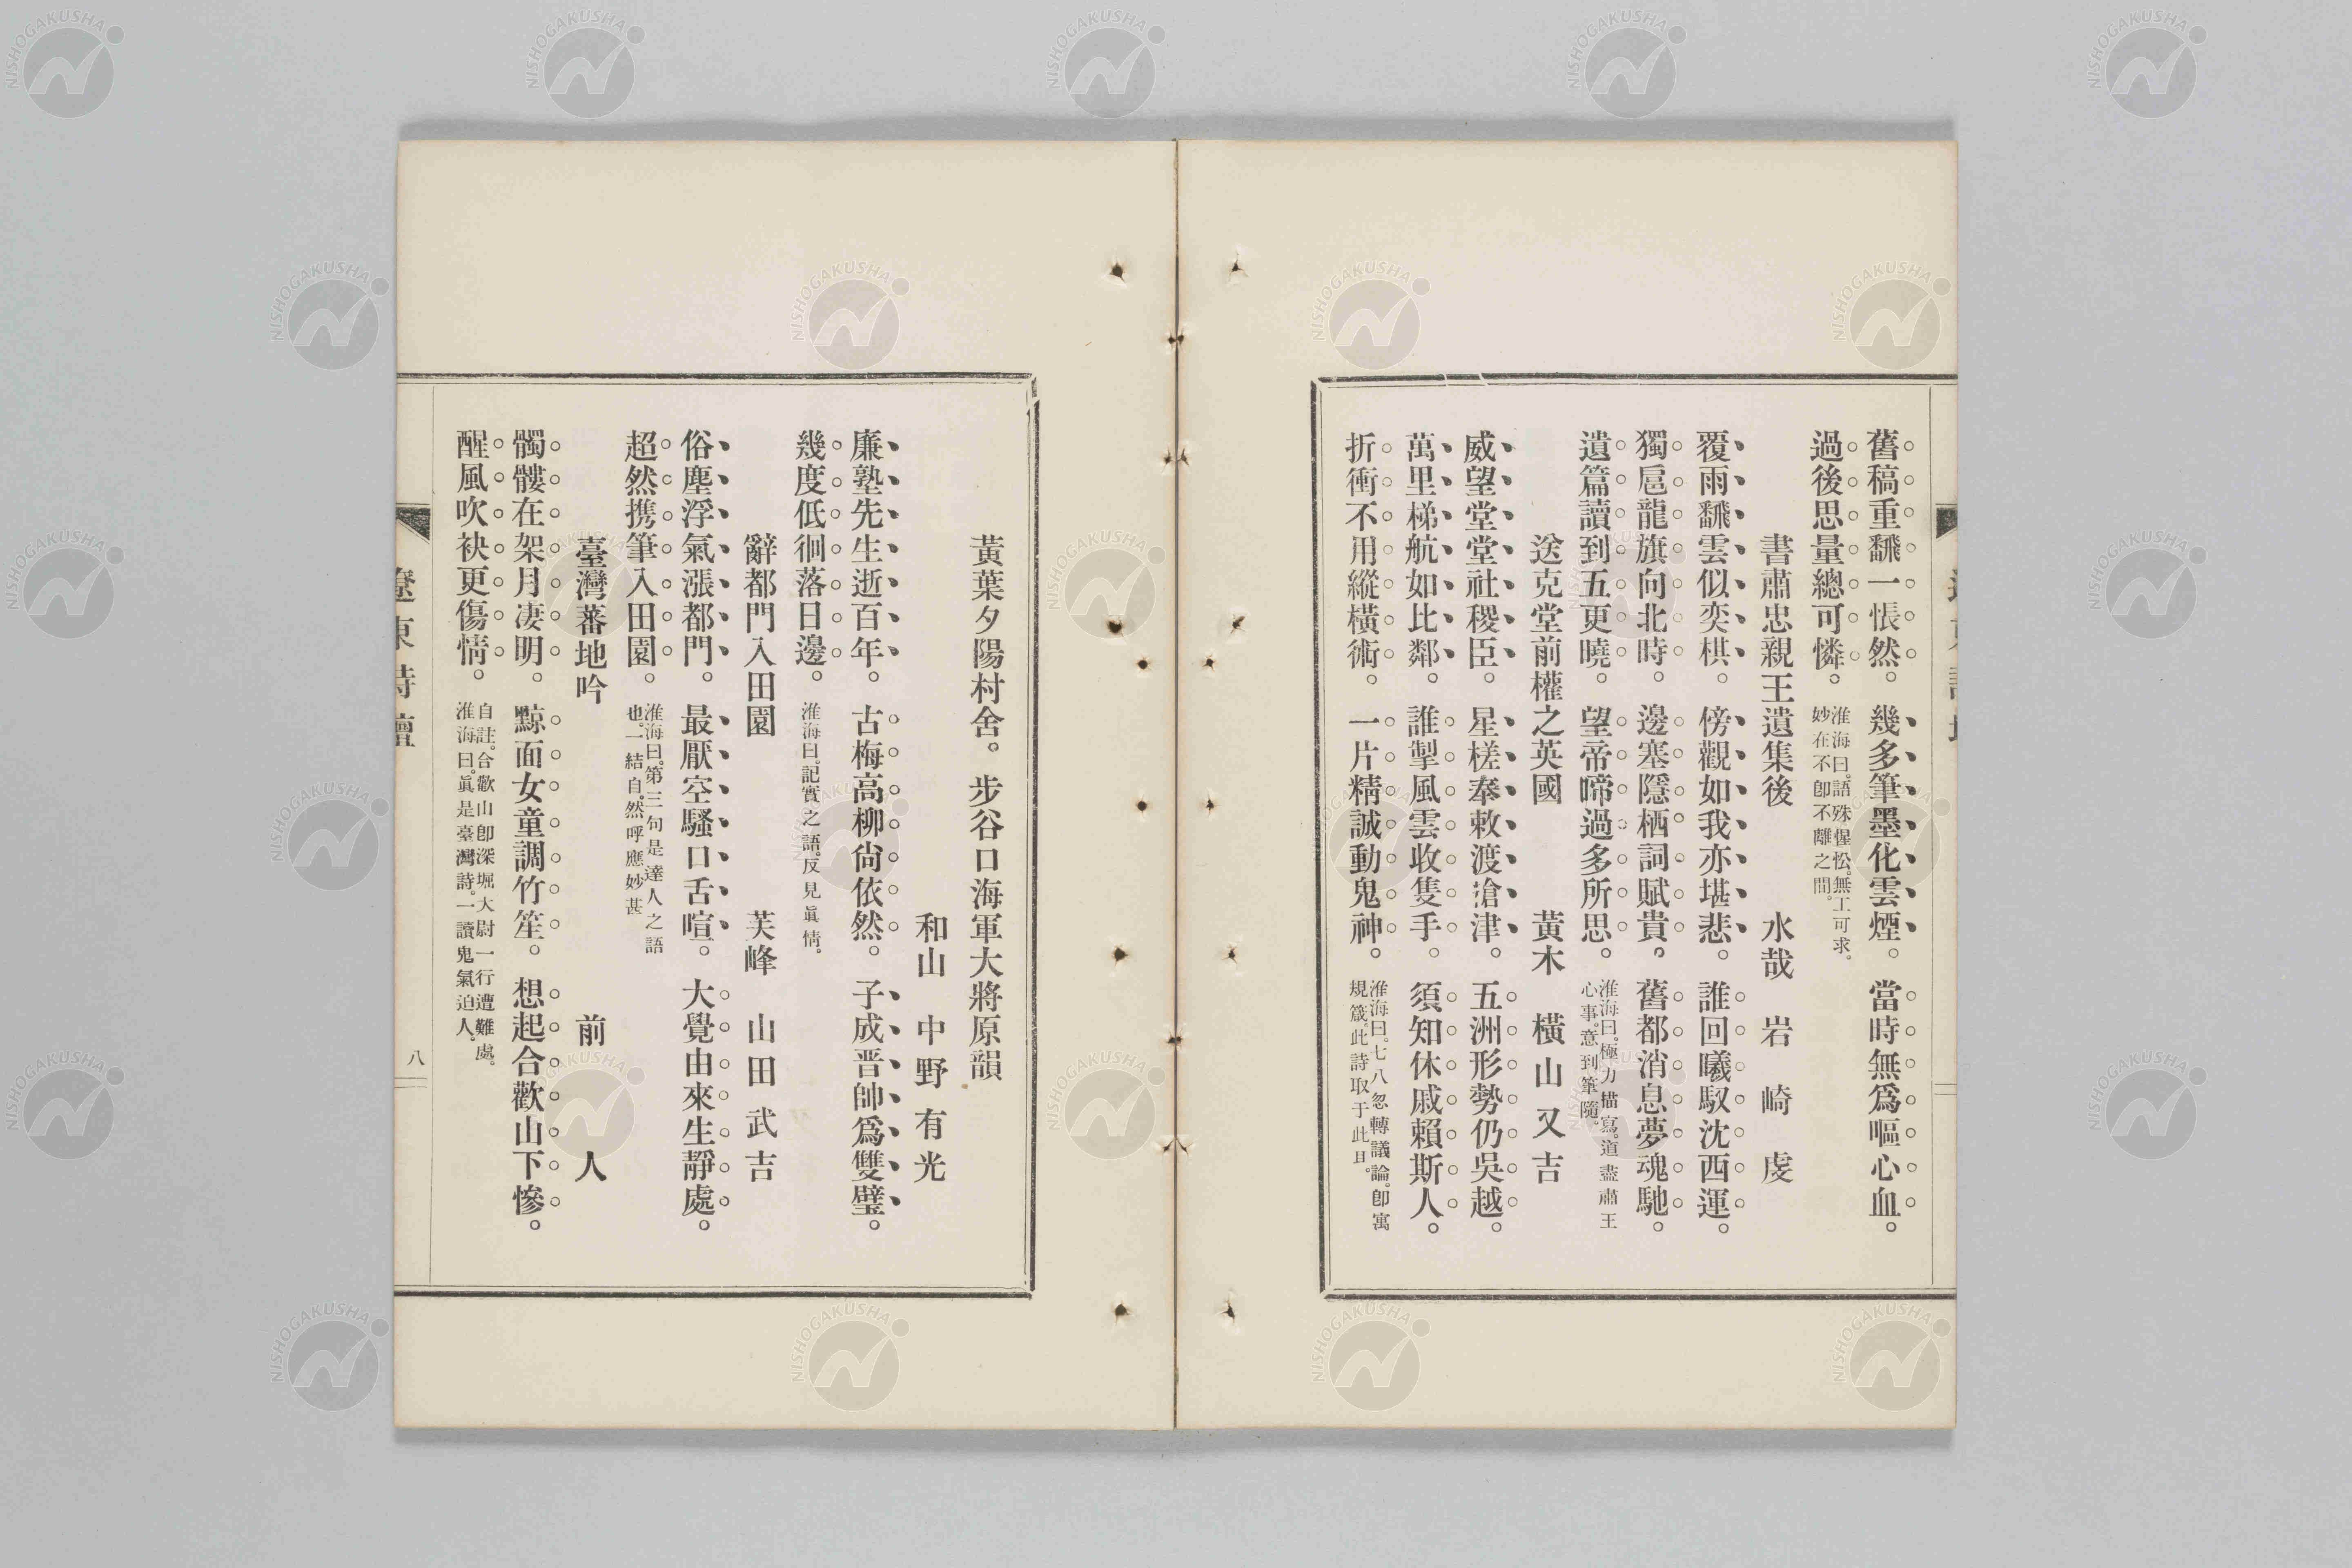 舊稿重飜一悵然。幾多筆墨化雲煙。當時無爲嘔心血。
過後思量總可憐。淮海曰。語殊惺忪。無工可求。
妙在不卽不離之間。
書肅忠親王遺集後 水哉 岩崎虔
覆雨飜雲似奕棋。傍觀如我亦堪悲。誰回曦馭沈西運。
獨扈龍旗向北時。邊塞隱栖詞賦貴。舊都消息夢魂馳。
遺篇讀到五更曉。望帝啼過多所思。淮海曰。極力描寫。道盡肅王
心事。意到筆隨。
送克堂前權之英國 黃木 橫山又吉
威望堂堂社稷臣。星槎奉敕渡滄津。五洲形勢仍吳越。
萬里梯航如比鄰。誰掣風雲收隻手。須知休戚賴斯人。
折衝不用縱橫術。一片精誠動鬼神。淮海曰。七八忽轉議論。卽寓
規箴。此詩取于此且。
黃葉夕陽村舍。步谷口海軍大將原韻
和山 中野有光
廉塾先生逝百年。古梅高柳尙依然。子成晋帥爲雙璧。
幾度低徊落日邊。淮海曰。記實之語。反見眞情。
辭都門入田園 芙峰 山田武吉
俗塵浮氣漲都門。最厭空騷口舌喧。大覺由來生靜處。
超然携筆入田園。淮海曰。第三句是達人之語
也。一結自然呼應妙甚
臺灣蕃地吟 前人
髑髏在架月凄明。黥面女童調竹笙。想起合歡山下慘。
醒風吹袂更傷情。自註。合歡山卽深堀大尉一行遭難處。
淮海曰。眞是臺灣詩。一讀鬼氣迫人。
遼東詩壇
八
NISHOGAKUSHA